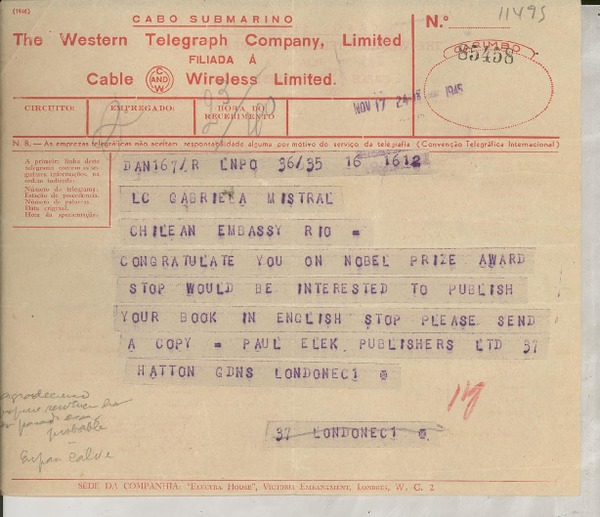 (1946)
CABO SUBMARINO
The Western Telegraph Company, Limited
FILIADA Á
Cable AND Wireless Limited.
N.º
11495
CARIMBO
85458
CIRCUITO:
EMPREGADO:
HORA DO RECEBIMENTO
NOV 17 1945
N. B. — As emprezas telegráficas não aceitam responsabilidade alguma por motivo do serviço da telegrafia (Convenção Telegráfica Internacional)
A primeira linha deste
telegrama contem as se-
guintes informações, na
ordem indicada:
Número do telegrama.
Estação de procedencia.
Número de palavras.
Data original.
Hora da apresentação.
DAN167/R LNPO 36/35 16 1612
LC GABRIELA MISTRAL
CHILEAN EMBASSY RIO =
CONGRATULATE YOU ON NOBEL PRIZE AWARD
STOP WOULD BE INTERESTED TO PUBLISH
YOUR BOOK IN ENGLISH STOP PLEASE SEND
A COPY = PAUL ELEK PUBLISHERS LTD 37
HATTON GDNS LONDONEC1
37 LONDONEC1
probable
SÉDE DA COMPANHIA: "ELECTRA HOUSE", VICTORIA EMBANKMENT, LONDRES, W. C. 2